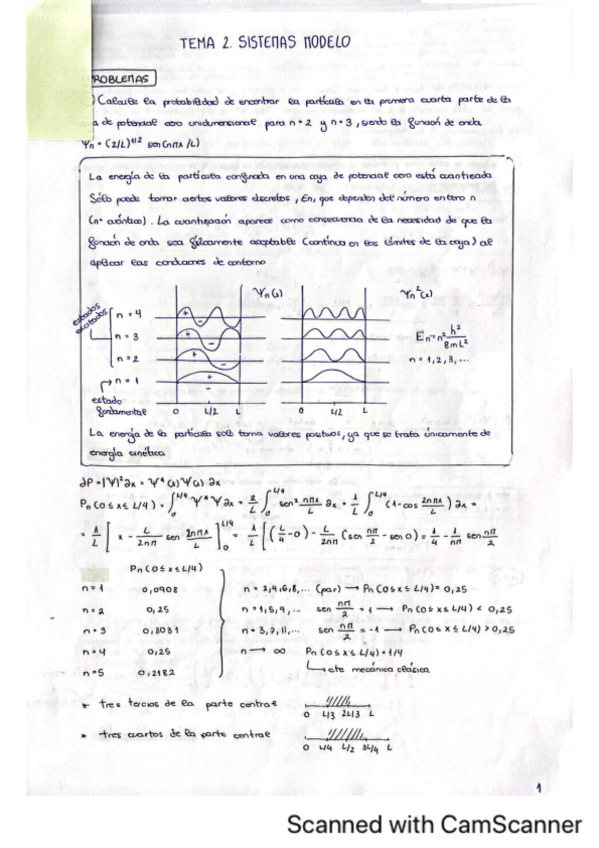 TEMA 2. SISTEMAS MODELO
ROBLEMAS
) Calcula la probabilidad de encontrar la partícula en la primera cuarta parte de la
a de potencial cero unidimensional para n=2 y n=3, siendo la función de onda
Ψn = (2/L)^1/2 sen(nπx/L)
La energía de la partícula confinada en una caja de potencial cero está cuantizada
Sólo puede tomar ciertos valores discretos, En, que dependen del número entero n
(nº cuántico). La cuantización aparece como consecuencia de la necesidad de que la
función de onda sea físicamente aceptable (continua en los límites de la caja) al
aplicar las condiciones de contorno
Ψn(x) Ψn²(x)
estados excitados
n = 4
n = 3
n = 2
n = 1
En = n² h²/8mL²
n = 1,2,3,...
estado fundamental
0 L/2 L 0 L/2 L
La energía de la partícula solo toma valores positivos, ya que se trata únicamente de
energía cinética
∂P = |Ψ|²∂x = Ψ*(x)Ψ(x) ∂x
Pn(0≤x≤L/4) = ∫₀^L/4 Ψ*Ψ∂x = 2/L ∫₀^L/4 sen² nπx/L ∂x = 1/L ∫₀^L/4 (1-cos 2nπx/L) ∂x =
= 1/L [x - L/2nπ sen 2nπx/L]₀^L/4 = 1/L [(L/4-0) - L/2nπ (sen nπ/2 - sen 0)] = 1/4 - 1/2nπ sen nπ/2
Pn(0≤x≤L/4)
n=1 0,0908 n = 2,4,6,8,... (par) → Pn(0≤x≤L/4) = 0,25
n=2 0,25 n = 1,5,9,... sen nπ/2 = 1 → Pn(0≤x≤L/4) < 0,25
n=3 0,3031 n = 3,7,11,... sen nπ/2 = -1 → Pn(0≤x≤L/4) > 0,25
n=4 0,25 n → ∞ Pn(0≤x≤L/4) = 1/4
n=5 0,2182 cte mecánica clásica
* tres tercios de la parte central
0 L/3 2L/3 L
* tres cuartos de la parte central
0 L/4 L/2 3L/4 L
1
Scanned with CamScanner